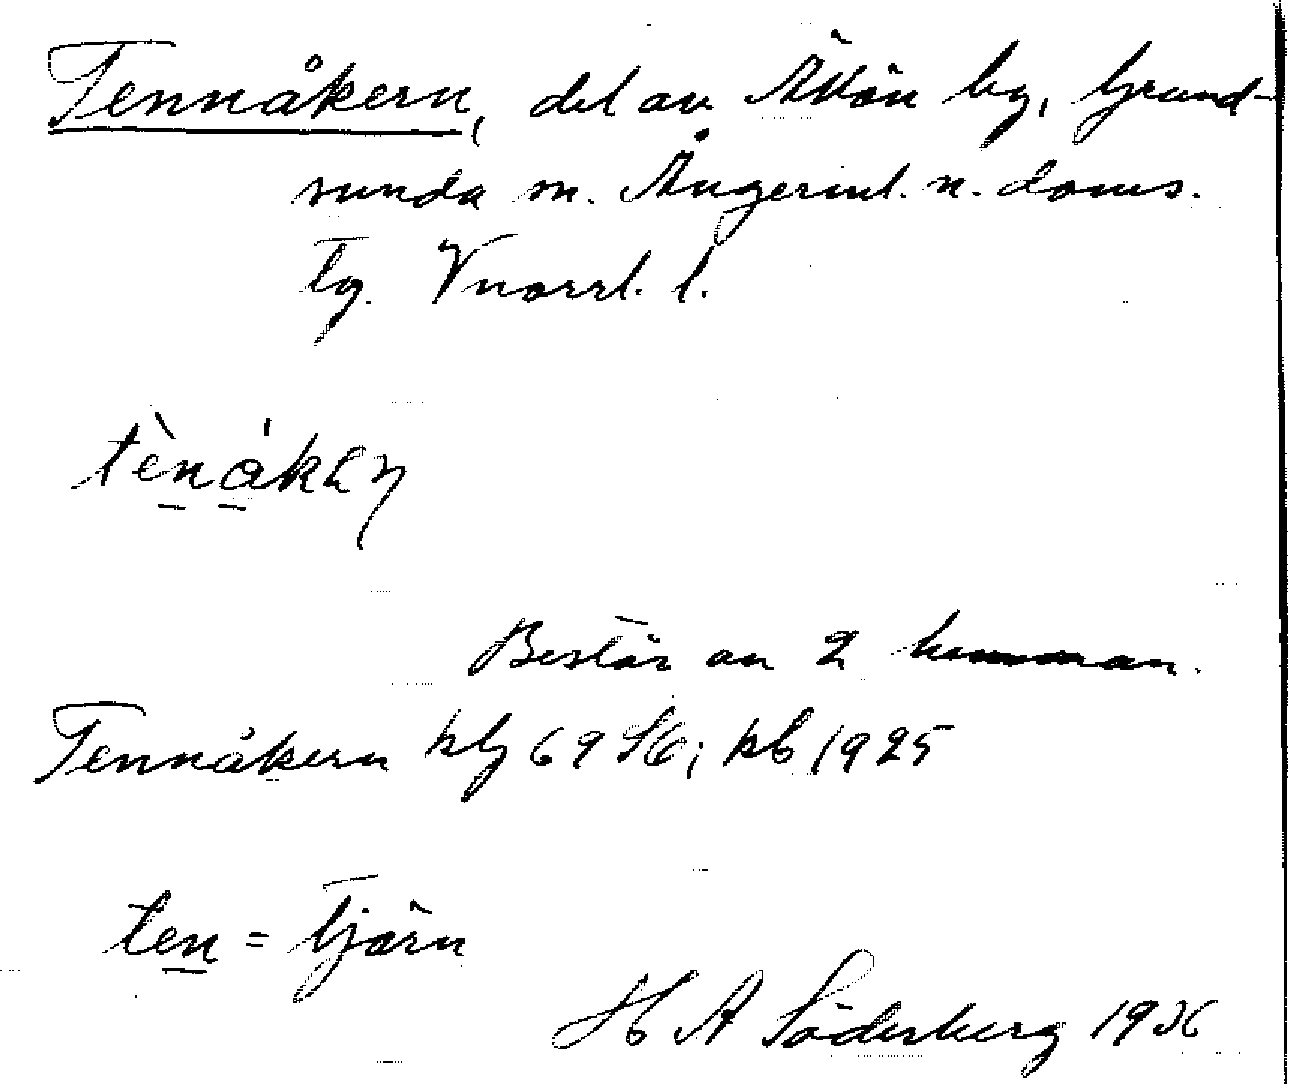 Tennåkern, del av Äkön by, Grund-
sunda sn. Ångerml. n. doms.
tg. Vnorrl. l.
tènåkən
Består av 2 hemman.
Tennåkern klj 69 ; kb 1925
ten = tjärn
H A Söderberg 1936